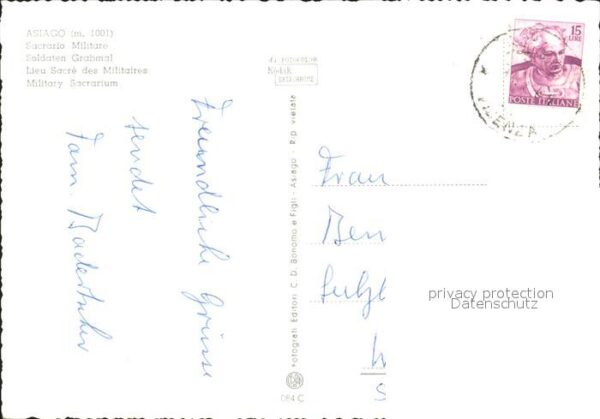 ASIAGO (m. 1001)
Sacrario Militare
Soldaten Grabmal
Lieu Sacré des Militaires
Military Sacrarium
Kodak
15
LIRE
POSTE ITALIANE
VICENZA
Freundliche Grüsse
sendet
Fam. Badertscher
Fotografi Editori C. D. Bonomo e Figli - Asiago - Rip. vietata
084 C
Frau
Ben
privacy protection
Datenschutz